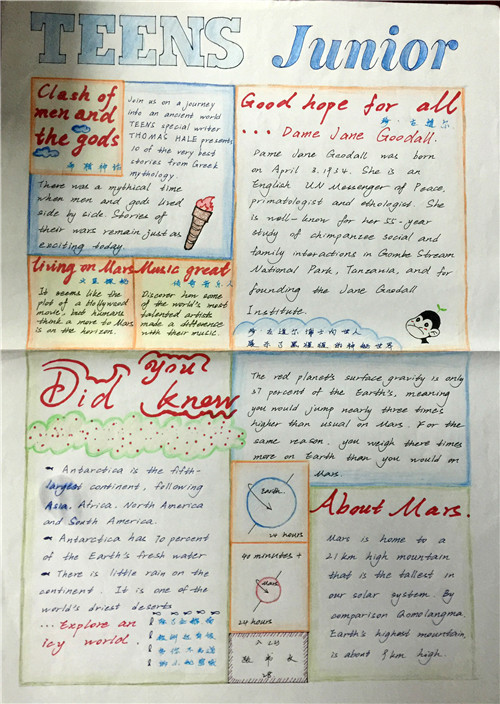 TEENS Junior
Clash of
men and
the gods
希腊神话
Join us on a journey
into an ancient world
TEENS special writer
THOMAS HALE presents
10 of the very best
stories from Greek
mythology.
There was a mythical time
when men and gods lived
side by side. Stories of
their wars remain just as
exciting today.
Good hope for all
... Dame Jane Goodall.
Dame Jane Goodall was born
on April 3, 1934. She is an
English UN Messenger of Peace,
primatologist and ethologist. She
is well-know for her 55-year
study of chimpanzee social and
family interactions in Gombe Stream
National Park, Tanzania, and for
founding the Jane Goodall
Institute.
living on Mars
It seems like the
plot of a Hollywood
movie, but humans
think a move to Mars
is on the horizon.
Music great
传奇音乐人
Discover how some
of the world's most
talented artist
made a difference
with their music.
Did you know
- Antarctica is the fifth-
largest continent, following
Asia, Africa, North America
and South America.
- Antarctica has 70 percent
of the Earth's fresh water
- There is little rain on the
continent. It is one of the
world's driest deserts
... Explore an
icy world.
The red planet's surface gravity is only
37 percent of the Earth's, meaning
you would jump nearly three times
higher than usual on Mars. For the
same reason, you weigh there times
more on Earth than you would on
Mars.
Earth
24 hours
40 minutes +
Mars
24 hours
About Mars.
Mars is home to a
21 km high mountain
that is the tallest in
our solar system. By
comparison Qomolangma,
Earth's highest mountain
is about 9 km high.